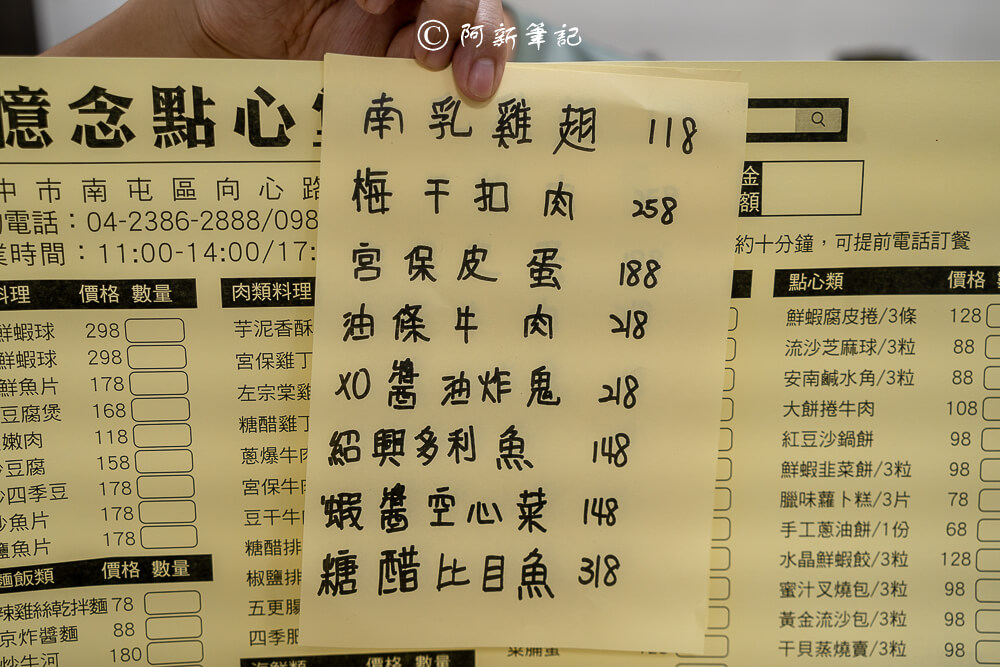 © 阿新筆記
憶念點心
中市南屯區向心路
電話：04-2386-2888/098
業時間：11:00-14:00/17:
料理 價格 數量
鮮蝦球 298
鮮蝦球 298
鮮魚片 178
豆腐煲 168
嫩肉 118
豆腐 158
四季豆 178
魚片 178
鹽魚片 178
麵飯類 價格 數量
辣雞絲乾拌麵 78
京炸醬麵 88
炒牛河 180
肉類料理
芋泥香酥
宮保雞丁
左宗棠雞
糖醋雞丁
蔥爆牛肉
宮保牛
豆干牛
糖醋排
椒鹽排
五更腸
四季肥
海鮮類 價格 數量
南乳雞翅 118
梅干扣肉 258
宮保皮蛋 188
油條牛肉 218
XO醬油炸鬼 218
紹興多利魚 148
蝦醬空心菜 148
糖醋比目魚 318
金額
約十分鐘，可提前電話訂餐
點心類 價格
鮮蝦腐皮捲/3條 128
流沙芝麻球/3粒 88
安南鹹水角/3粒 88
大餅捲牛肉 108
紅豆沙鍋餅 98
鮮蝦韭菜餅/3粒 98
臘味蘿卜糕/3片 78
手工蔥油餅/1份 68
水晶鮮蝦餃/3粒 128
蜜汁叉燒包/3粒 98
黃金流沙包/3粒 98
干貝蒸燒賣/3粒 98
菜脯蛋